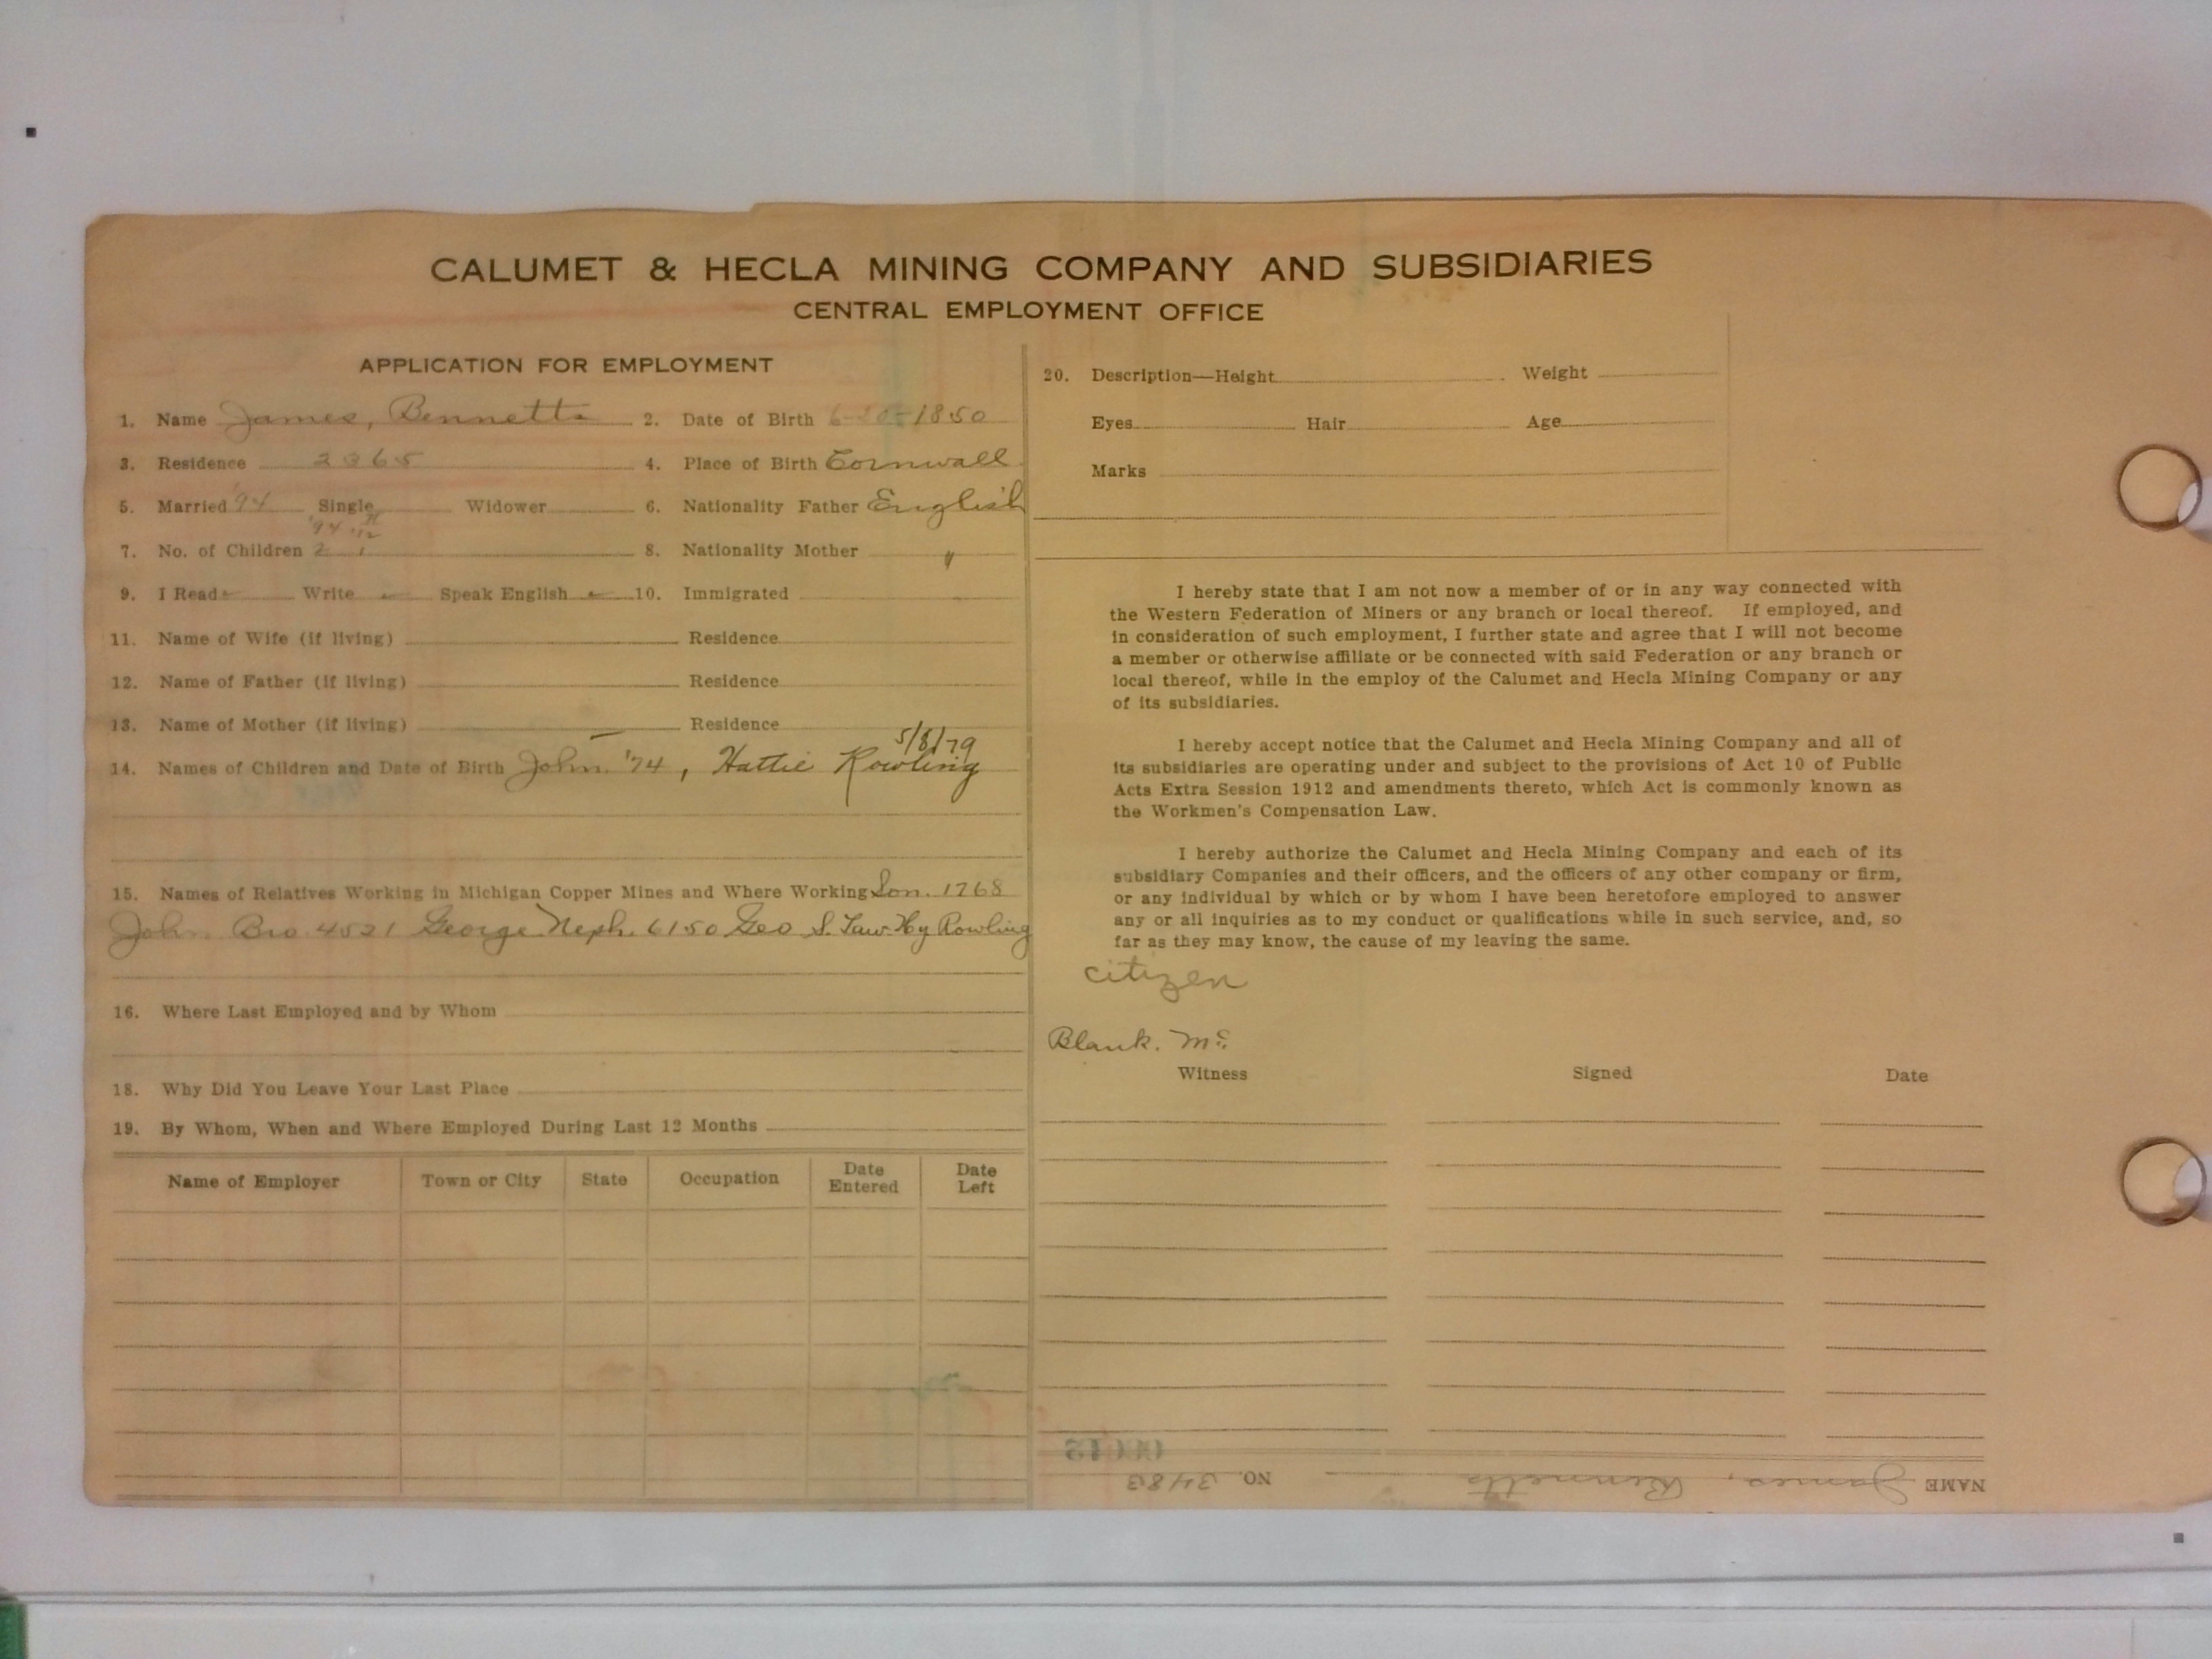 CALUMET & HECLA MINING COMPANY AND SUBSIDIARIES
CENTRAL EMPLOYMENT OFFICE
APPLICATION FOR EMPLOYMENT
1. Name James, Bennetts 2. Date of Birth 6-20-1850
3. Residence 2365 4. Place of Birth Cornwall
5. Married '94 Single Widower 6. Nationality Father English
'94 '12
7. No. of Children 2 1 8. Nationality Mother "
9. I Read Write Speak English 10. Immigrated
11. Name of Wife (if living) Residence
12. Name of Father (if living) Residence
13. Name of Mother (if living) Residence
5/8/79
14. Names of Children and Date of Birth John '74, Hattie Rowling
15. Names of Relatives Working in Michigan Copper Mines and Where Working Son. 1768
John Bro. 4521 George Neph. 6150 Geo S. Law Hy Rowling
16. Where Last Employed and by Whom
18. Why Did You Leave Your Last Place
19. By Whom, When and Where Employed During Last 12 Months
Name of Employer Town or City State Occupation Date Entered Date Left
20. Description—Height Weight
Eyes Hair Age
Marks
I hereby state that I am not now a member of or in any way connected with
the Western Federation of Miners or any branch or local thereof. If employed, and
in consideration of such employment, I further state and agree that I will not become
a member or otherwise affiliate or be connected with said Federation or any branch or
local thereof, while in the employ of the Calumet and Hecla Mining Company or any
of its subsidiaries.
I hereby accept notice that the Calumet and Hecla Mining Company and all of
its subsidiaries are operating under and subject to the provisions of Act 10 of Public
Acts Extra Session 1912 and amendments thereto, which Act is commonly known as
the Workmen's Compensation Law.
I hereby authorize the Calumet and Hecla Mining Company and each of its
subsidiary Companies and their officers, and the officers of any other company or firm,
or any individual by which or by whom I have been heretofore employed to answer
any or all inquiries as to my conduct or qualifications while in such service, and, so
far as they may know, the cause of my leaving the same.
citizen
Blank. Mc
Witness Signed Date
NAME James, Bennetts NO. 3483